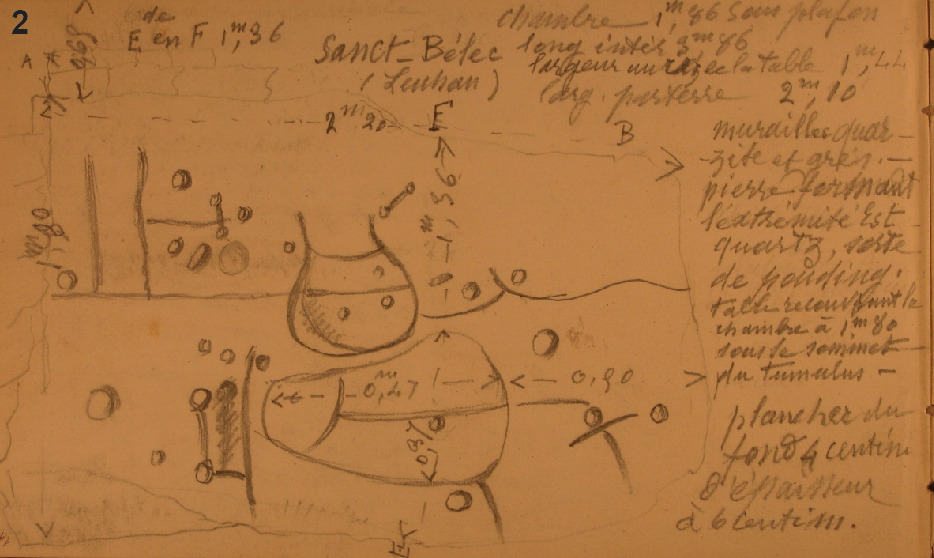 2
de
E en F 1m,36
0,69
A
Sanct-Bélec
(Leuhan)
chambre 1m,86 sous plafon
long intér 3m86
largeur la table 1m,44
larg. par terre 2m,10
2m20
F
B
1m,36
1m,80
murailles quar-
zite et grès. —
pierre formant
l'extrémité Est
quartz, sorte
de pouding.
table recouvrant la
chambre à 1m80
sous le sommet
du tumulus —
0m,47
0,90
plancher du
fond 4 centim
d'épaisseur
à 6 centim.
E